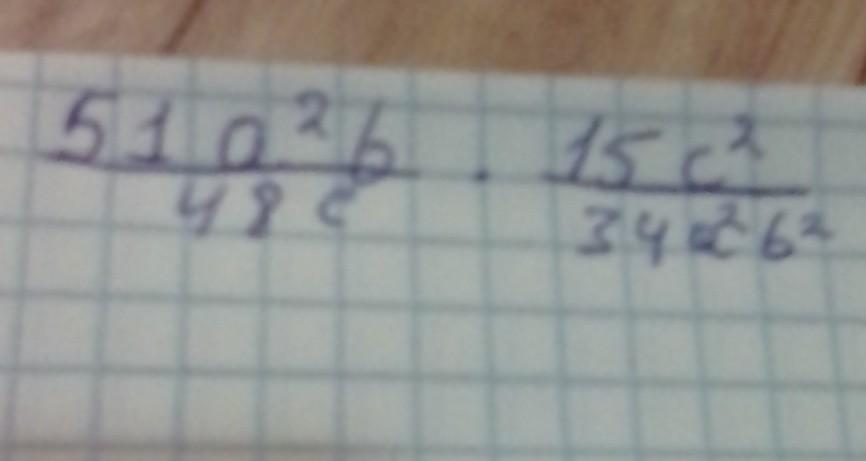 51 a² b / 48 c · 15 c² / 34 a² b²